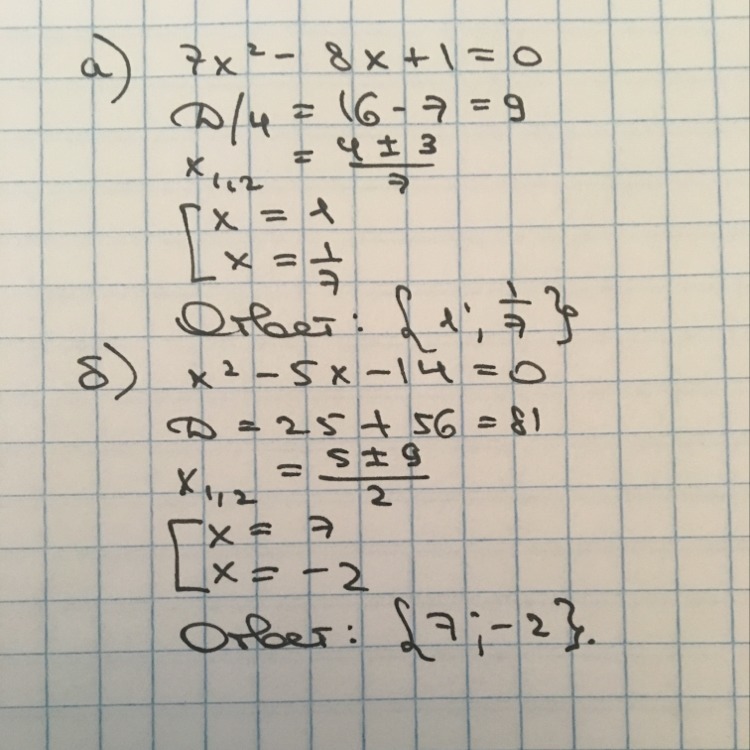 а) 7x² - 8x + 1 = 0
D/4 = 16 - 7 = 9
x₁,₂ = (4 ± 3)/7
[ x = 1
x = 1/7
Ответ: {1; 1/7}
б) x² - 5x - 14 = 0
D = 25 + 56 = 81
x₁,₂ = (5 ± 9)/2
[ x = 7
x = -2
Ответ: {7; -2}.